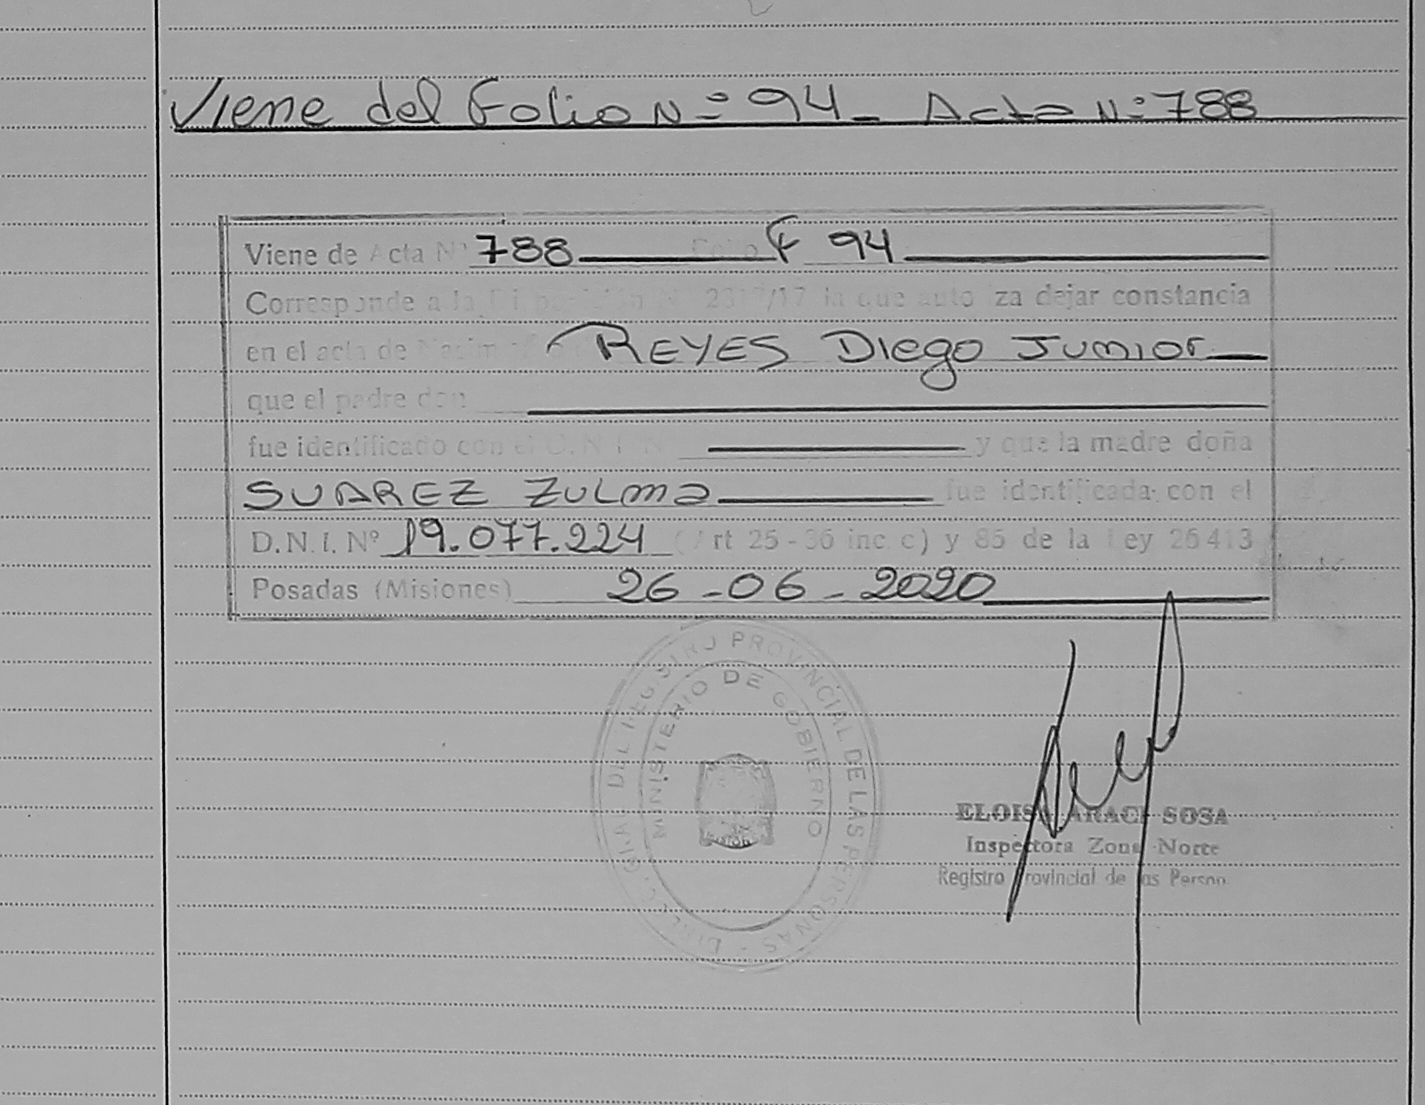 Viene del Folio N= 94 - Acta N: 788
Viene de Acta N° 788 Folio F 94
Corresponde a la 231 /17 la que auto za dejar constancia
en el acta de REYES Diego Junior
que el padre don
fue identificado con el D.N.I. N y que la madre doña
SUAREZ ZULMA fue identificada con el
D.N.I. Nº 19.077.224 ( rt 25 - 36 inc c) y 85 de la ey 26413
Posadas (Misiones) 26 - 06 - 2020
DEL REGISTRO PROVINCIAL DE LAS PERSONAS -
MINISTERIO DE GOBIERNO
ELOISA ARACI SOSA
Inspectora Zona Norte
Registro Provincial de las Person